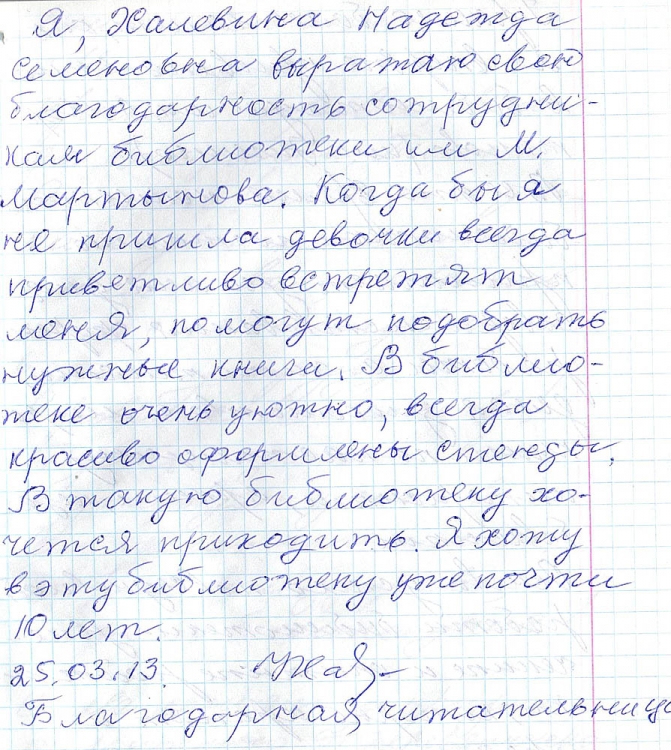 Я, Халевина Надежда
Семеновна выражаю свою
благодарность сотрудни-
кам библиотеки им М.
Мартынова. Когда бы я
не пришла девочки всегда
приветливо встретят
меня, помогут подобрать
нужные книги. В библио-
теке очень уютно, всегда
красиво оформлены стенды.
В такую библиотеку хо-
чется приходить. Я хожу
в эту библиотеку уже почти
10 лет.
25.03.13.
Благодарная читательница